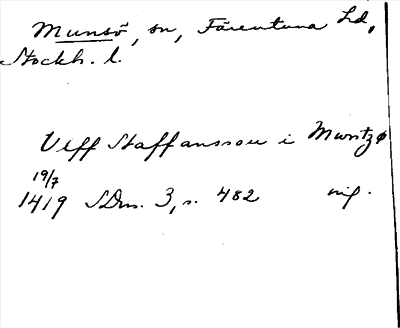 Munsö, sn, Färentuna hd,
Stockh. l.
Ulff Staffansson i Muntzø
19/7
1419 SDns. 3, s. 482 nip.